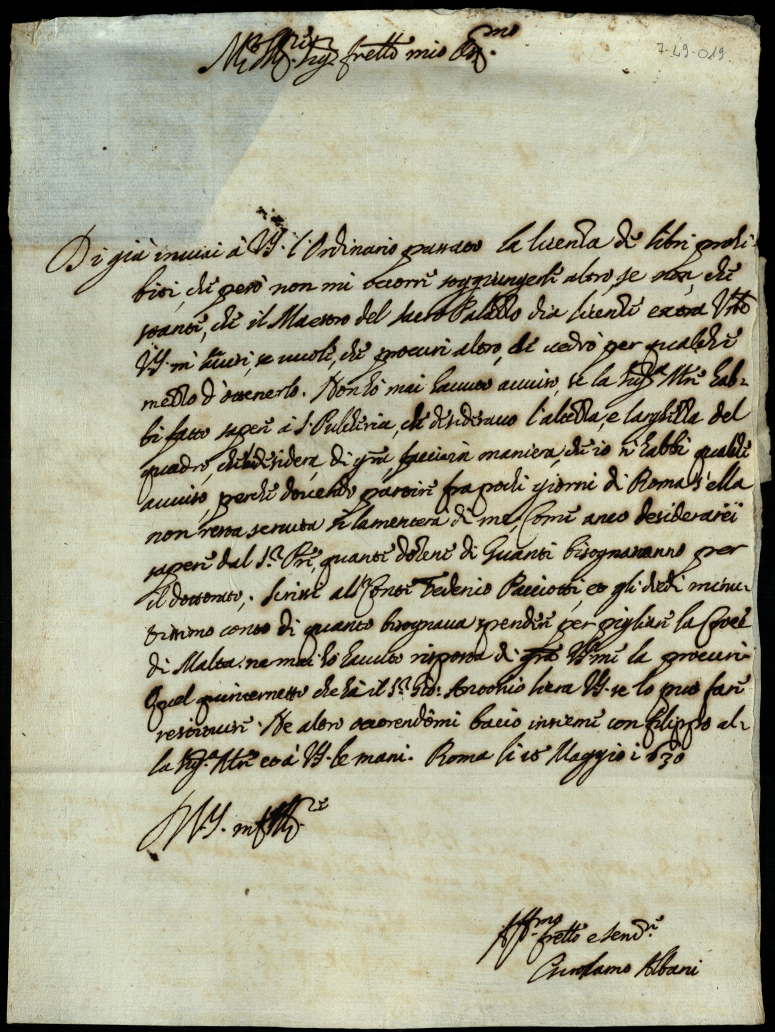 7-49-019
Sig.r fratello mio
Di già inviai à VS. l'Ordinario passato la licenza de libri prohi-
biti, che però non mi occorre soggiungerli altro, se non, che
stante, che il Maestro del Sacro Palazzo dia licenze extra Urbe
VS. mi scrivi, se vuole, che procuri altro, che vedrò per qualche
mezzo d'ottenerlo. Non hò mai havuto avviso, se la Sig.a Mre hab-
bi fatto sapere à S. Pulcheria, che desideravo l'altezza, e larghezza del
quadro, che desidera, di gra facci in maniera, che io n'habbi qualche
avviso, perche dovendo partire fra pochi giorni di Roma s'ella
non resta servita si lamenterà di me, Come anco desidererei
sapere dal S.r Pre, quante dozene di Guanti bisognaranno per
il dottorato. Scrissi al Conte Federico Pacciotti, et gli diedi minu-
tissimo conto di quanto bisognava spendere per pigliare la Croce
di Malta, ne mai hò havuto risposta di gra VS. me la procuri.
Quel quinternetto che hà il S.r Gio: Antonio VS. se lo può fare
restituire. Ne altro occorrendomi bacio insieme con filippo al-
la Sig.a Mre et à VS. le mani. Roma li 15 Maggio 1630
Di VS. m. Ill.re
Aff.mo
fratello e Ser.re
Girolamo Albani